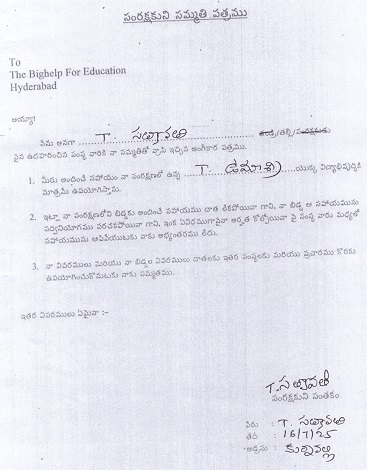 సంరక్షకుని సమ్మతి పత్రము
To
The Bighelp For Education
Hyderabad
అయ్యా!
నేను అనగా T. సత్యావతి తండ్రి/తల్లి/సంరక్షకుడు
పైన ఉదహరించిన సంస్థ వారికి నా సమ్మతితో వ్రాసి ఇచ్చిన అంగీకార పత్రము.
1. మీరు అందించే సహాయం నా సంరక్షణలో ఉన్న T. ఉమాశ్రీ యొక్క విద్యాభివృద్ధికి
మాత్రమే ఉపయోగిస్తాను.
2. ఇట్లా నా సంరక్షణలోని బిడ్డకు అందించే సహాయము దాత లేకపోయినా గాని, నా బిడ్డ ఆ సహాయమును
సద్వినియోగము పరచకపోయినా గాని, ఇంక ఏవిధముగానైనా అర్హత కోల్పోయినా పై సంస్థ వారు మధ్యలో
సహాయమును ఆపివేయుటకు నాకు అభ్యంతరము లేదు.
3. నా వివరములు మరియు నా బిడ్డల వివరములు దాతలకు ఇతర సంస్థలకు మరియు ప్రచారము కొరకు
ఉపయోగించుకొనుటకు నాకు సమ్మతము.
ఇతర వివరములు ఏమైనా :-
T. సత్యావతి
సంరక్షకుని సంతకం
పేరు : T. సత్యావతి
తేది : 16/7/25
అడ్రసు :